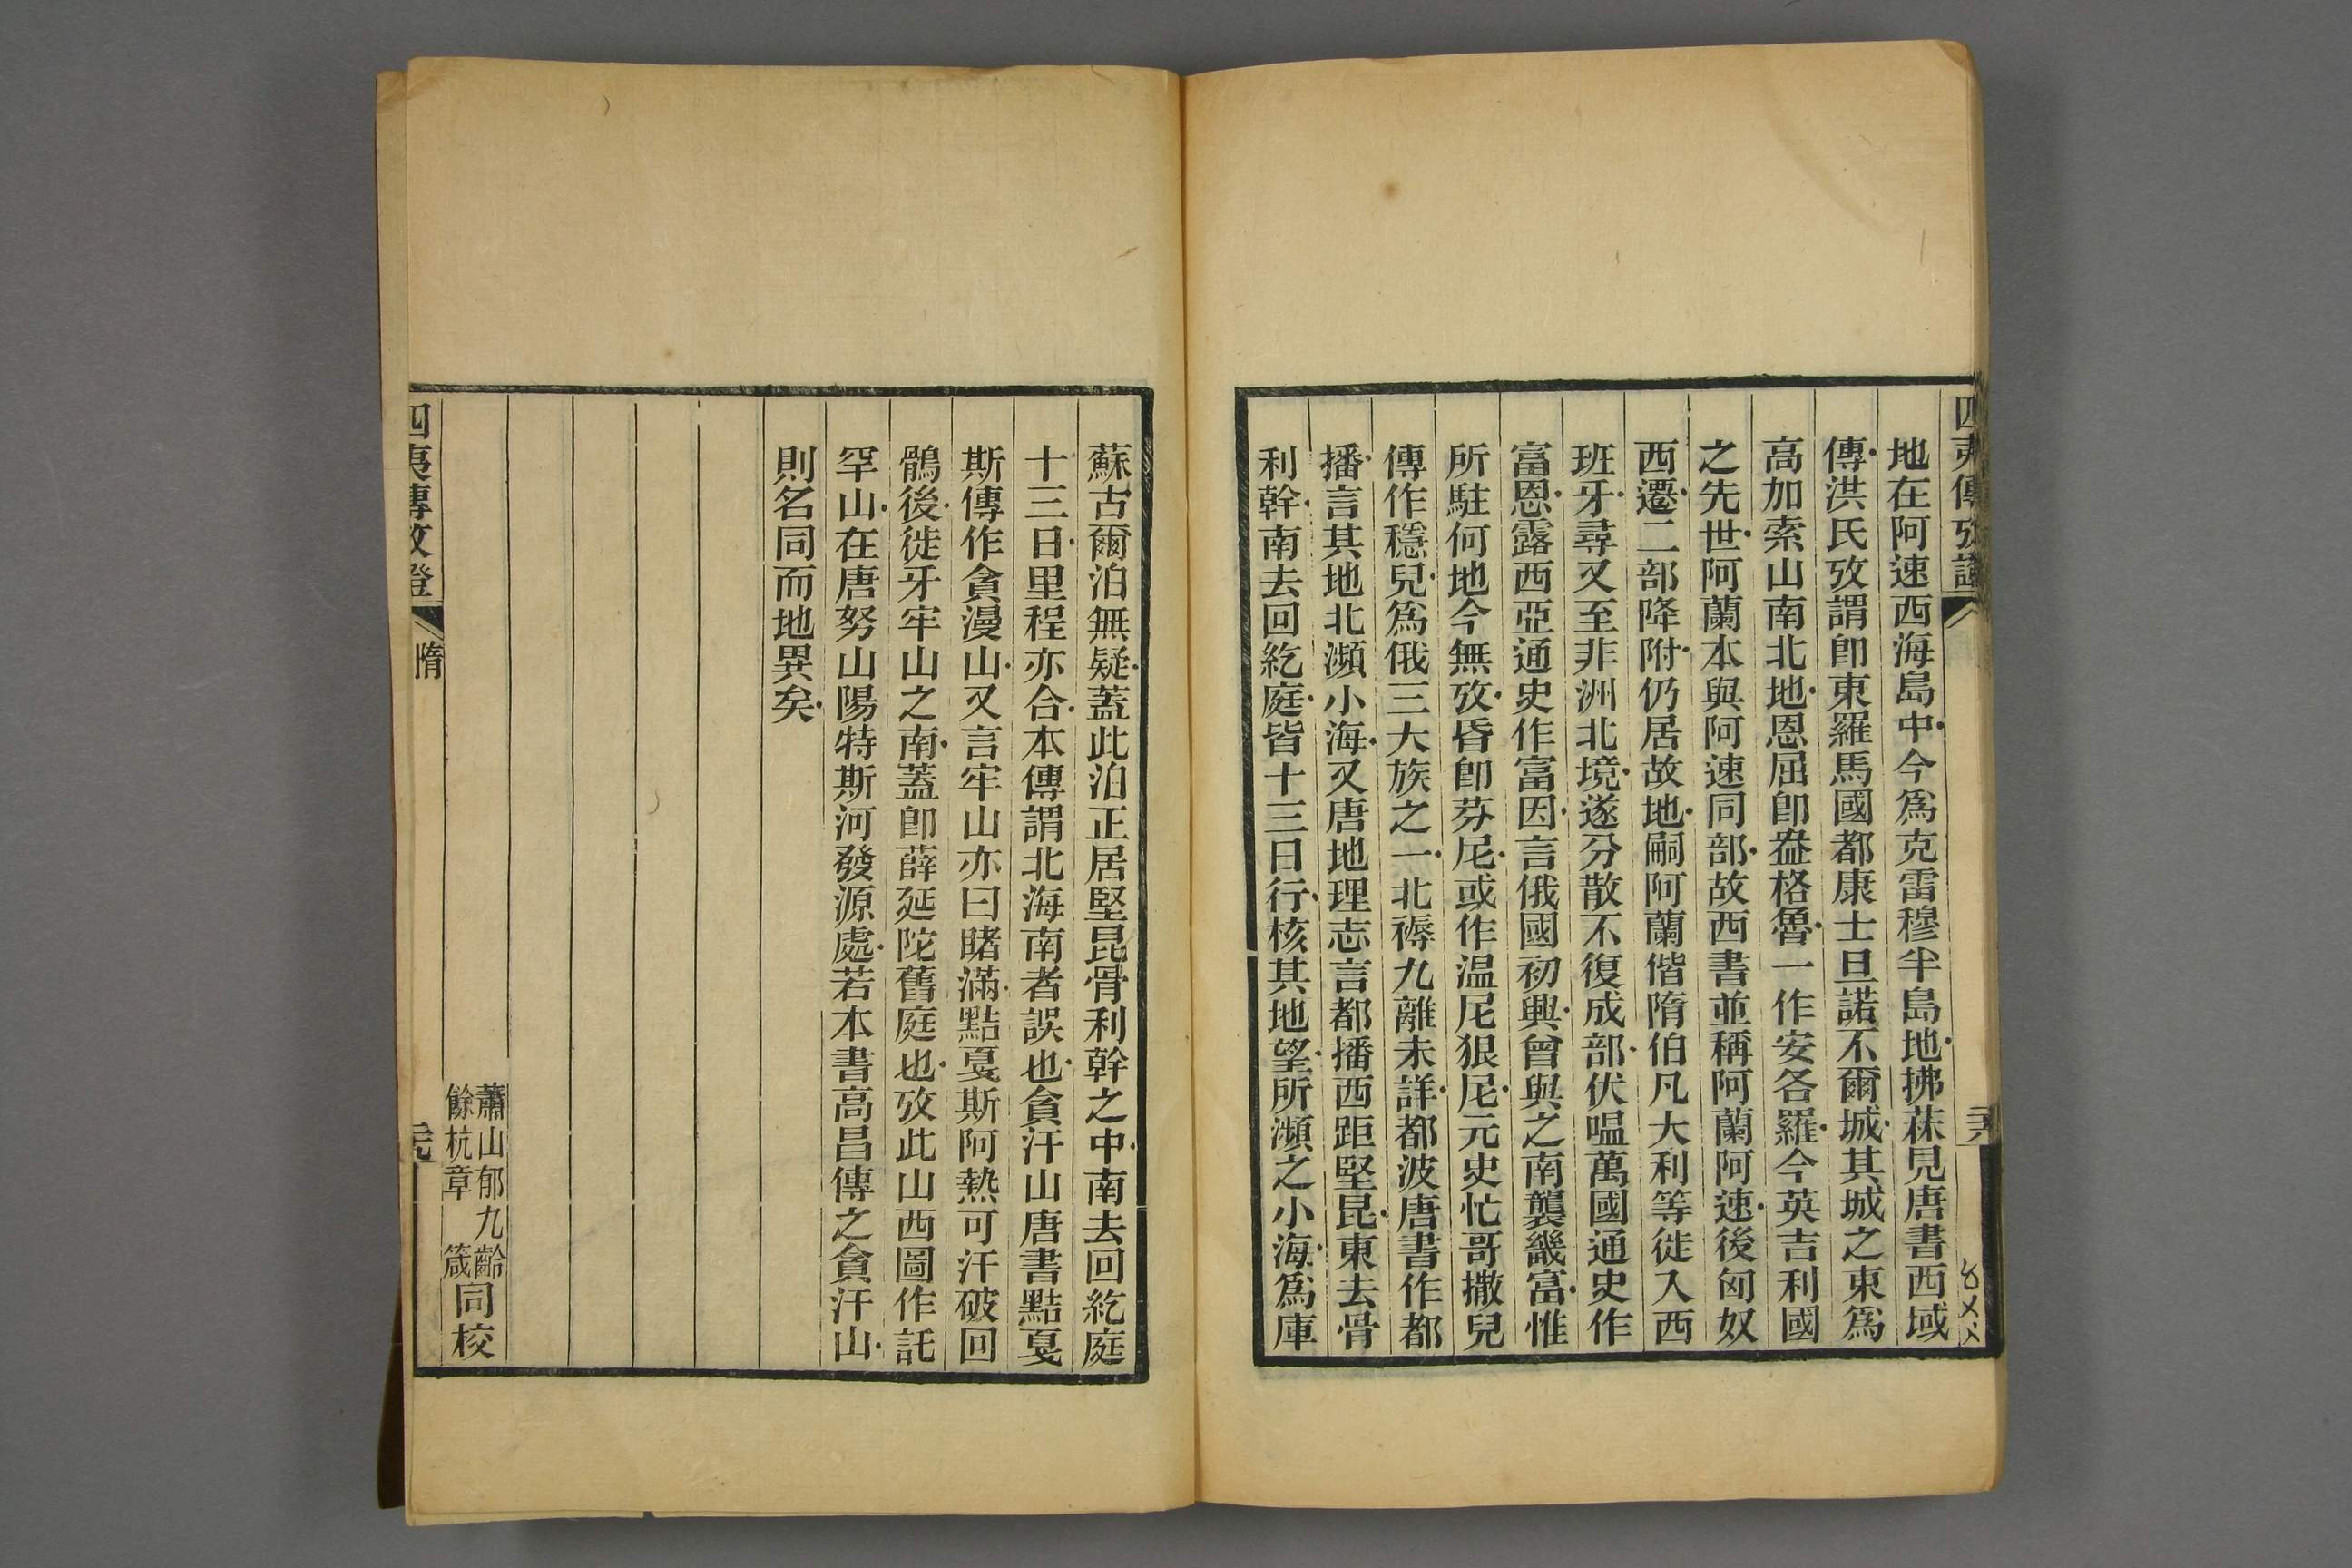 四夷傳攷證
地在阿速西海島中今爲克雷穆半島地拂菻見唐書西域
傳洪氏攷謂卽東羅馬國都康士旦諾不爾城其城之東爲
高加索山南北地恩屈卽盎格魯一作安各羅今英吉利國
之先世阿蘭本與阿速同部故西書並稱阿蘭阿速後匈奴
西遷二部降附仍居故地嗣阿蘭偕隋伯凡大利等徙入西
班牙尋又至非洲北境遂分散不復成部伏嗢萬國通史作
富恩露西亞通史作富因言俄國初興曾與之南襲畿富惟
所駐何地今無攷昏卽芬尼或作温尼狠尼元史忙哥撒兒
傳作穩兒爲俄三大族之一北褥九離未詳都波唐書作都
播言其地北瀕小海又唐地理志言都播西距堅昆東去骨
利幹南去回紇庭皆十三日行核其地望所瀕之小海爲庫
蘇古爾泊無疑蓋此泊正居堅昆骨利幹之中南去回紇庭
十三日里程亦合本傳謂北海南者誤也貪汗山唐書黠戛
斯傳作貪漫山又言牢山亦曰睹滿黠戛斯阿熱可汗破回
鶻後徙牙牢山之南蓋卽薛延陀舊庭也攷此山西圖作託
罕山在唐努山陽特斯河發源處若本書高昌傳之貪汗山
則名同而地異矣
蕭山郁九齡
餘杭章 箴
同校
四夷傳攷證
隋